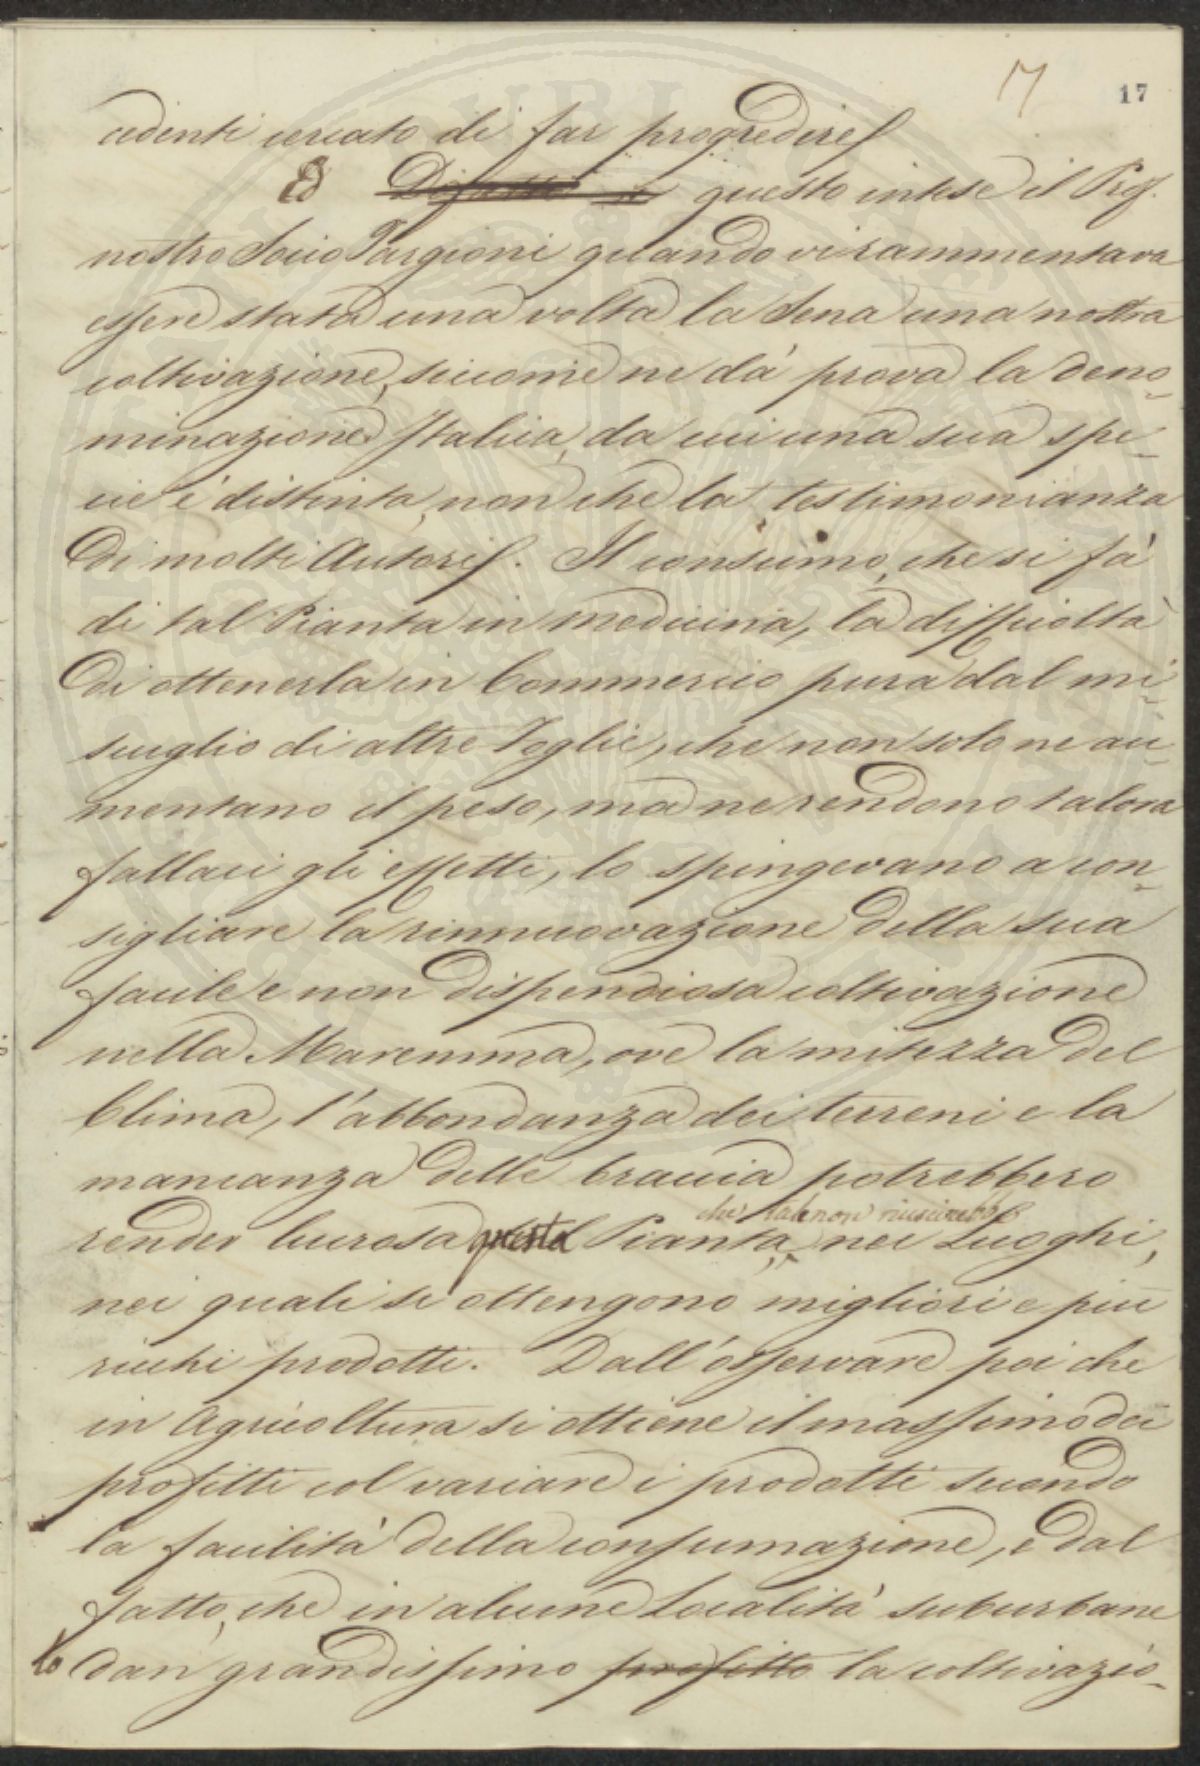 17 17
cedenti cercato di far progredire.
Ed ~~Difatti a~~ questo intese il Prof.
nostro Socio Targioni quando vi rammentava
essere stata una volta la Sena una nostra
coltivazione, siccome ne dà prova la deno-
minazione Italica, da cui una sua spe-
cie è distinta, non che la testimonianza
di molti Autori. Il consumo, che si fà
di tal Pianta in medicina, la difficoltà
di ottenerla in Commercio pura dal mi-
scuglio di altre Foglie, che non solo ne au-
mentano il peso, ma ne rendono talora
fallaci gli effetti, lo spingevano a con-
sigliare la rinnuovazione della sua
facile e non dispendiosa coltivazione
nella Maremma, ove la mitezza del
Clima, l'abbondanza dei terreni e la
mancanza delle braccia potrebbero
che tale non riuscirebbe
render lucrosa questa Pianta, nei Luoghi,
nei quali si ottengono migliori e più
ricchi prodotti. Dall'osservare poi che
in Agricoltura si ottiene il massimo dei
profitti col variare i prodotti secondo
la facilità della consumazione, e dal
fatto, che in alcune Località suburbane
lo dan grandissimo ~~profitto~~ la coltivazio-